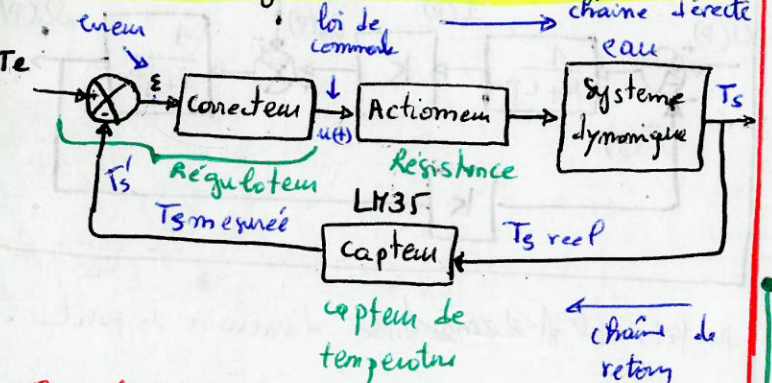 loi de
commande
chaîne directe
erreur
eau
Te
+
-
ε
Correcteur
u(t)
Actionneur
Système
dynamique
Ts
Régulateur
Résistance
Ts'
Ts mesurée
LM35
Capteur
Ts reel
capteur de
température
chaîne de
retour